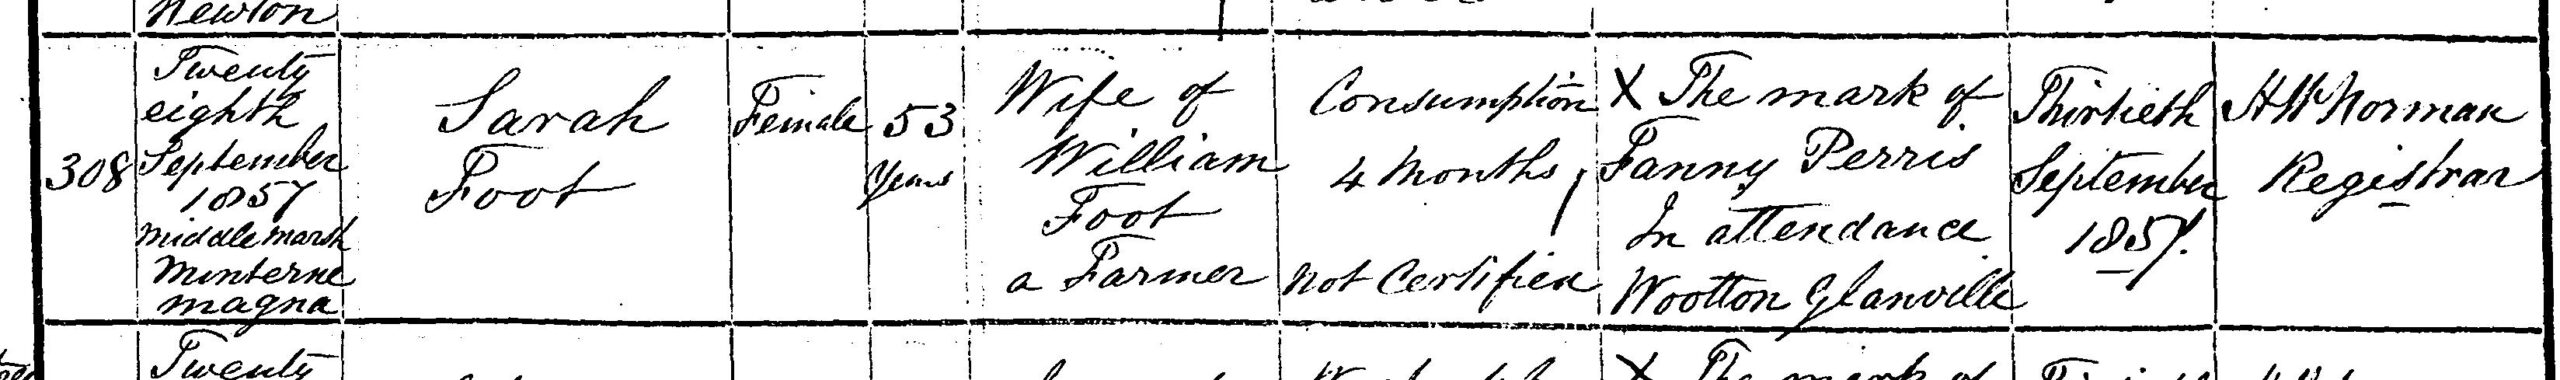 Newton
308
Twenty
eighth
September
1857
Middlemarsh
Minterne
magna
Sarah
Foot
Female
53
Years
Wife of
William
Foot
a Farmer
Consumption
4 Months
Not Certified
X The mark of
Fanny Perris
In attendance
Wootton Glanville
Thirtieth
September
1857.
H W Norman
Registrar
Twenty
X The mark of